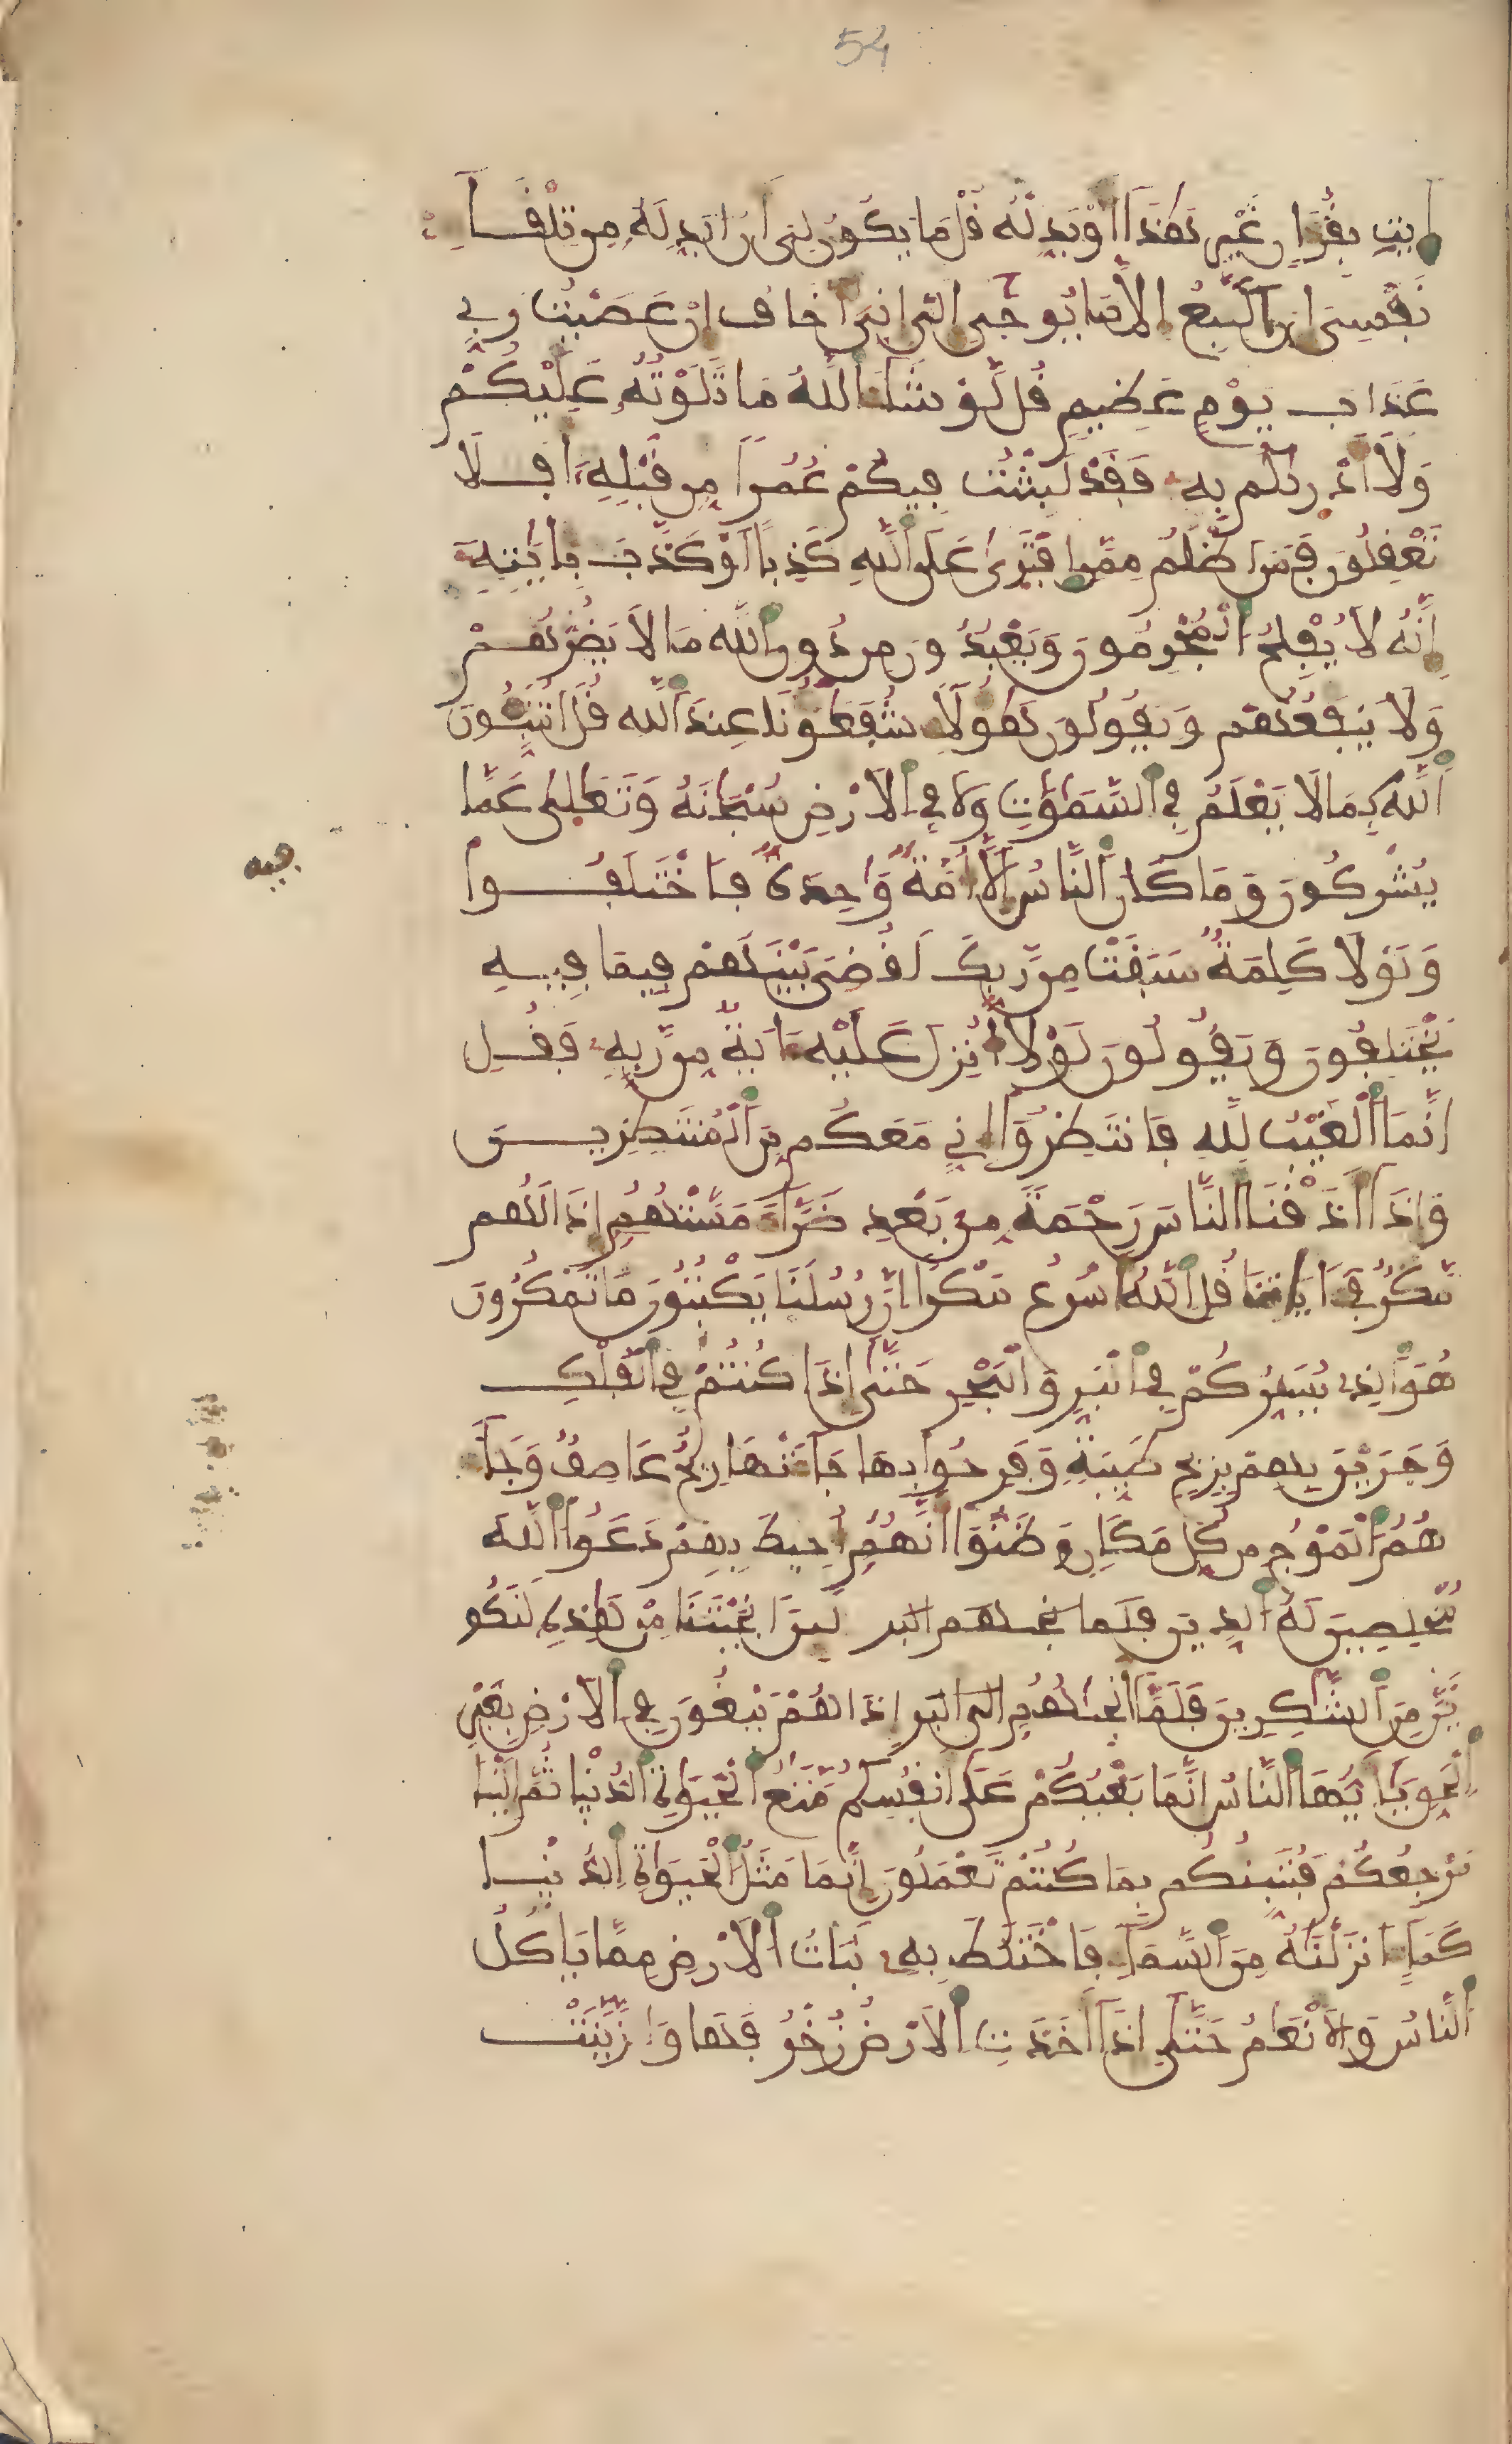 54
ايت بقرءان غير هذا أو بدله قل ما يكون لي أن أبدله من تلقاء
نفسي إن أتبع إلا ما يوحى إلي إني أخاف إن عصيت ربي
عذاب يوم عظيم قل لو شاء الله ما تلوته عليكم
ولا أدريكم به فقد لبثت فيكم عمرا من قبله أفلا
تعقلون فمن أظلم ممن افترى على الله كذبا أو كذب بآيته
إنه لا يفلح المجرمون ويعبدون من دون الله ما لا يضرهم
ولا ينفعهم ويقولون هؤلاء شفعؤنا عند الله قل أتنبئون
الله بما لا يعلم في السموت ولا في الأرض سبحنه وتعلى عما
يشركون وما كان الناس إلا أمة واحدة فاختلفوا
ولولا كلمة سبقت من ربك لقضي بينهم فيما فيه
يختلفون ويقولون لولا أنزل عليه ءاية من ربه فقل
إنما الغيب لله فانتظروا إني معكم من المنتظرين
وإذا أذقنا الناس رحمة من بعد ضراء مستهم إذا لهم
مكر في ءاياتنا قل الله أسرع مكرا إن رسلنا يكتبون ما تمكرون
هو الذي يسيركم في البر والبحر حتى إذا كنتم في الفلك
وجرين بهم بريح طيبة وفرحوا بها جاءتها ريح عاصف وجاء
هم الموج من كل مكان وظنوا أنهم أحيط بهم دعوا الله
مخلصين له الدين فلما نجيهم البر لئن أنجيتنا من هذه لنكو
نن من الشكرين فلما أنجيهم إلى البر إذا هم يبغون في الأرض بغير
الحق يأيها الناس إنما بغيكم على أنفسكم متع الحيوة الدنيا ثم إلينا
مرجعكم فننبئكم بما كنتم تعملون إنما مثل الحيوة الدنيا
كماء أنزلنه من السماء فاختلط به نبات الأرض مما يأكل
الناس والأنعم حتى إذا أخذت الأرض زخرفها وازينت